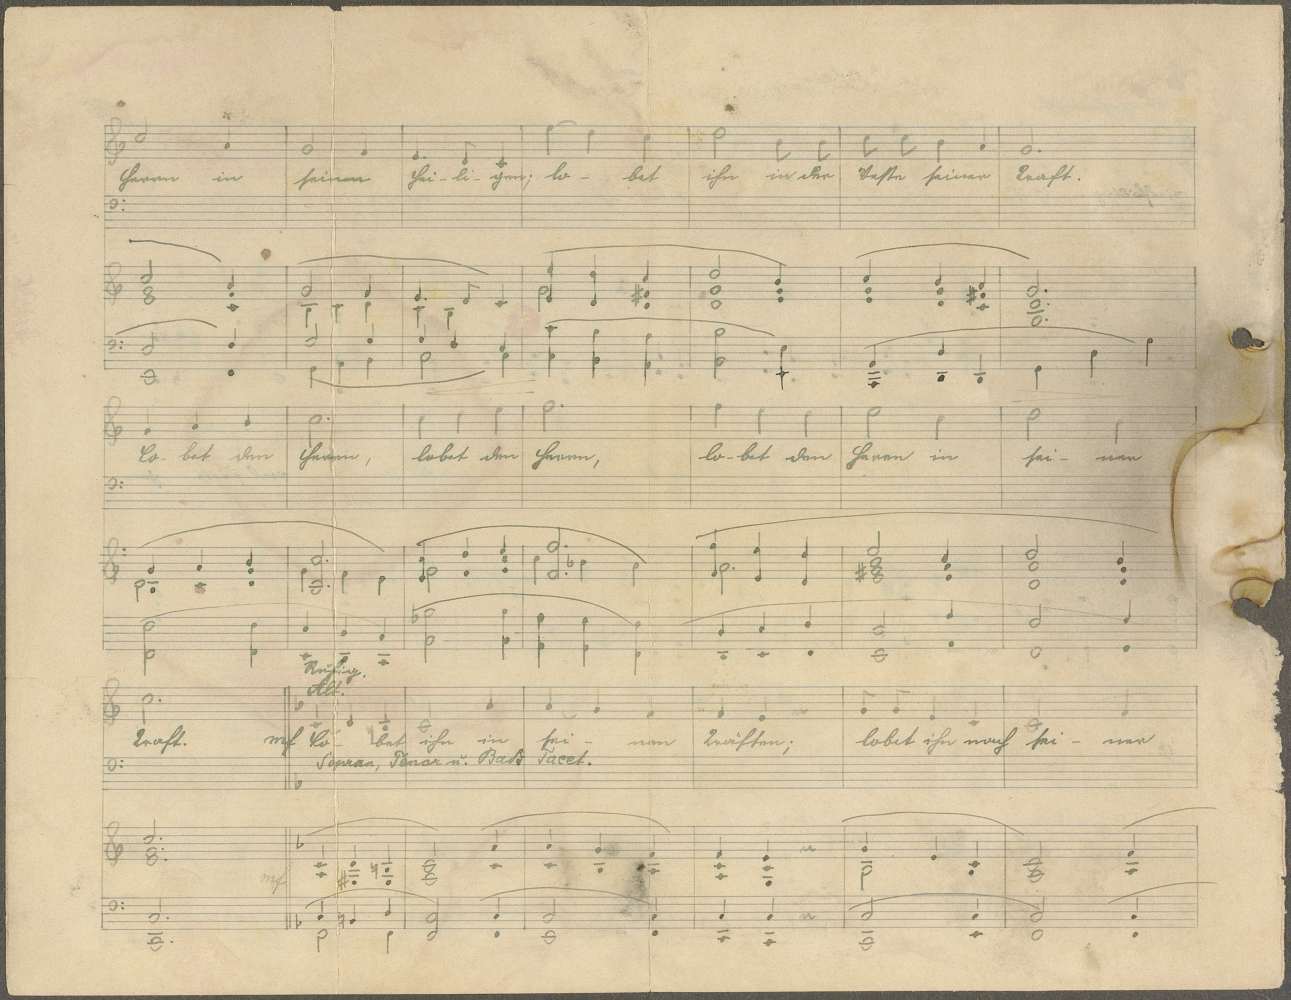 Herrn in seinem Hei-li-gen; lo- bet ihn in der Veste seiner Kraft.
Lo- bet den Herrn, lobet den Herrn, lo-bet den Herrn in sei- ner
Ruhig.
Alt.
Kraft. mf Lo- bet ihn in sei- nen Kräften; lobet ihn nach sei- ner
Sopran, Tenor u. Baß Tacet.
mf